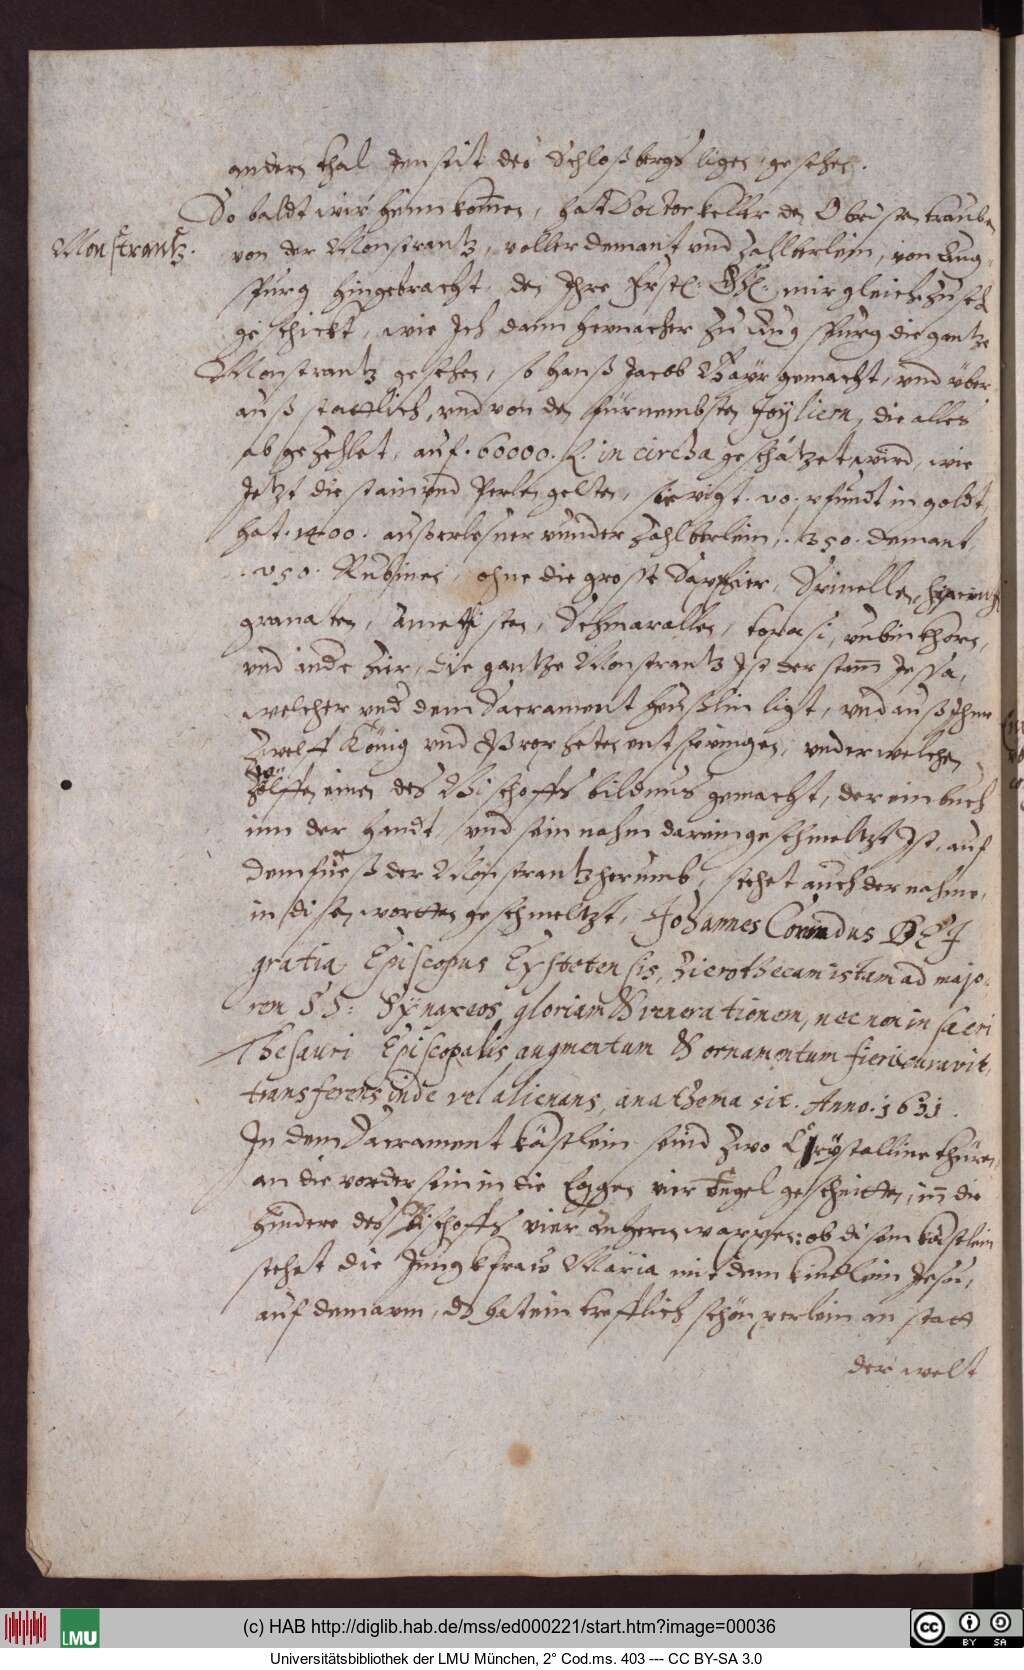 andern thal Jenseit des Schloßbergs ligen gesehen.
So baldt wir heimkom̄en, hat Doctor Keller den Obristen trauben
Monstrantz.
von der Monstrantz, voller demant und Zahlberlein, von Aug-
spurg hingebracht, den Ihre Frstl: Gn: mir gleich zu sehen
geschickt, wie Ich dann hernacher zu Augspurg die gantze
Monstrantz gesehen, so hanß Jacob Bayr gemacht, und über
auß stattlich, und von den fürnembsten Joylien, die alles
abgezehlet, auf. 60000. fl. in circha geschätzet wird, wie
Jetzt die stain und Perlen gelten, sie wigt. 40. pfundt in goldt,
hat. 1400. außerlesner runder Zahlberlein, 350. demant,
.250. Rubinen, ohne die grosse Sapphier, Spinellen, hyacinth
granaten, Ametisten, Schmarallen, topasi, rubin khorn,
und
die gantze Monstrantz Ist der stam̄ Jessa,
welcher und dem Sacrament heußlin ligt, und auß Ihme
Zwelff König und Propheten entspringen, under welchen
Zwölfften einer des Bischoffs bildnus gemacht, der ein buch
inn der handt, und sein nahm darein geschmeltzt Ist, auf
dem fueß der Monstrantz herumb, stehet auch der nahme,
in disen wortten geschmeltzt, Johannes Conradus DEI
gratia Episcopus Eystetensis, hierothecam istam ad majo-
rem SS: Synaxeos gloriam & venerationem, nec non in sacri
Thesauri Episcopalis augmentum & ornamentum fieri curavit,
transferens inde vel alienans, anathema sit. Anno. 1611.
In dem Sacrament kästlein seind zwo Crystalline thüren,
an die vorder sein in die Eggen vier Engel geschnitten, in̄ die
hindere des Bischoffs vier anhern wappen: ob disem kästlein
stehet die Jungkfraw Maria mit dem kindlein Jesu,
auf dem arm, dz hat ein trefflich schön perlein an statt
der welt
(c) HAB http://diglib.hab.de/mss/ed000221/start.htm?image=00036
LMU
cc BY SA
Universitätsbibliothek der LMU München, 2° Cod.ms. 403 --- CC BY-SA 3.0